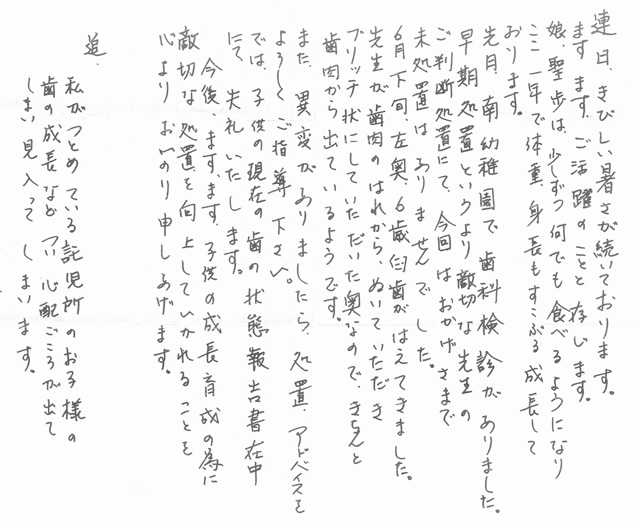 連日、きびしい暑さが続いております。
ますます、ご活躍のことと存じます。
娘、聖歩は、少しずつ何でも食べるようになり
ここ一年で体重、身長もすこぶる成長して
おります。
先月、南幼稚園で歯科検診がありました。
早期処置というより敵切な先生の
ご判断処置にて、今回はおかげさまで
未処置はありませんでした。
6月下旬、左奥、6歳臼歯がはえてきました。
先生が歯肉のはれから、ぬいていただき
ブリッヂ状にしていただいた奥なので、きちんと
歯肉から出ているようです。
また、異変がありましたら、処置、アドバイスを
よろしくご指導下さい。
では、子供の現在の歯の状態報告書在中
にて、失礼いたします。
今後、ますます、子供の成長育成の為に
敵切な処置を向上していかれることを
心よりおいのり申しあげます。
追.
私がつとめている託児所のお子様の
歯の成長など、つい心配ごころが出て
しまい見入ってしまいます。